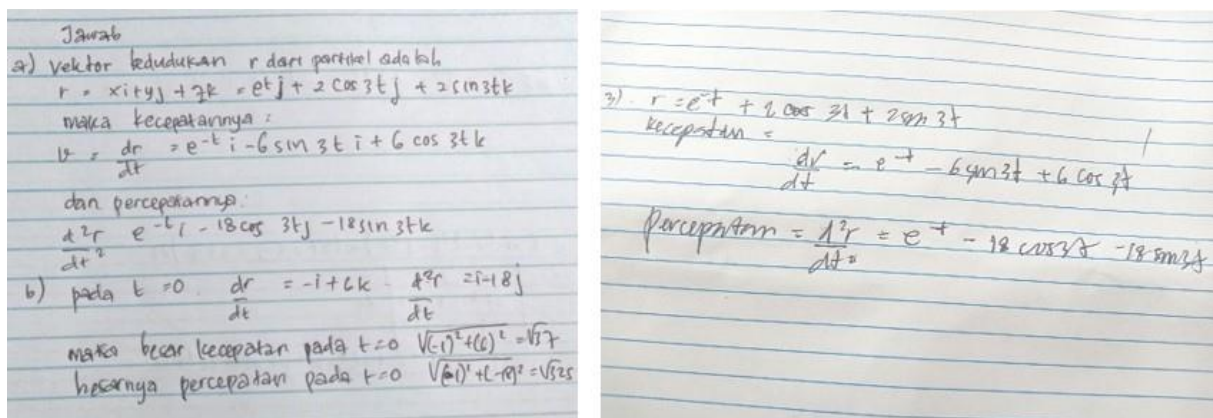 Jawab
a) vektor kedudukan r dari partikel adalah
r = xi + yj + zk = e^t j + 2 cos 3t j + 2 sin 3t k
maka kecepatannya :
v = dr/dt = e^-t i - 6 sin 3t i + 6 cos 3t k
dan percepatannya.
d²r/dt² e^-t i - 18 cos 3tj - 18 sin 3tk
b) pada t = 0 . dr/dt = -i + 6k . d²r/dt = i - 18 j
maka besar kecepatan pada t=0 √(-1)² + (6)² = √37
besarnya percepatan pada t=0 √(-1)² + (-18)² = √325
3) . r = e^-t + 2 cos 3t + 2 sin 3t
kecepatan =
dr/dt = e^-t - 6 sin 3t + 6 cos 3t
percepatan = d²r/dt² = e^-t - 18 cos 3t - 18 sin 3t